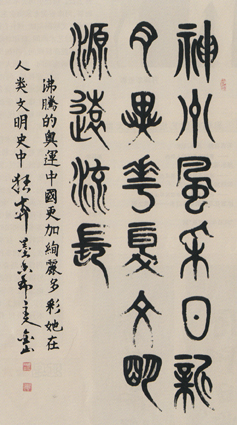 神州風采日新
月異華夏文明
源遠流長
沸騰的奧運中國更加絢麗多彩她在
人類文明史中狂奔